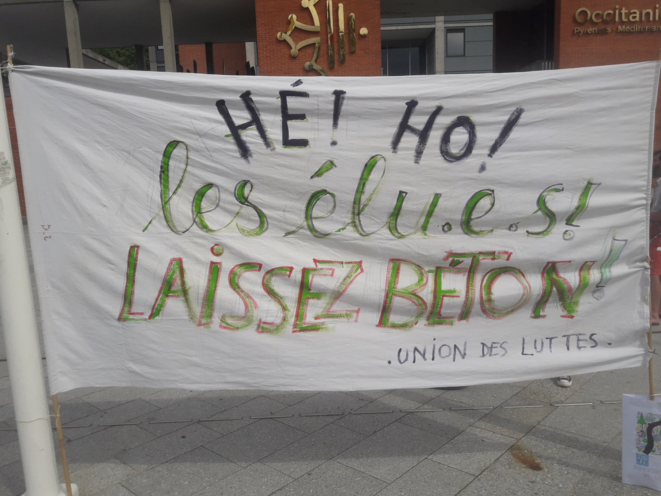 Occitanie
Pyrénées - Méditerranée
HÉ! HO!
les élu.e.s!
LAISSEZ BÉTON!
. UNION DES LUTTES .